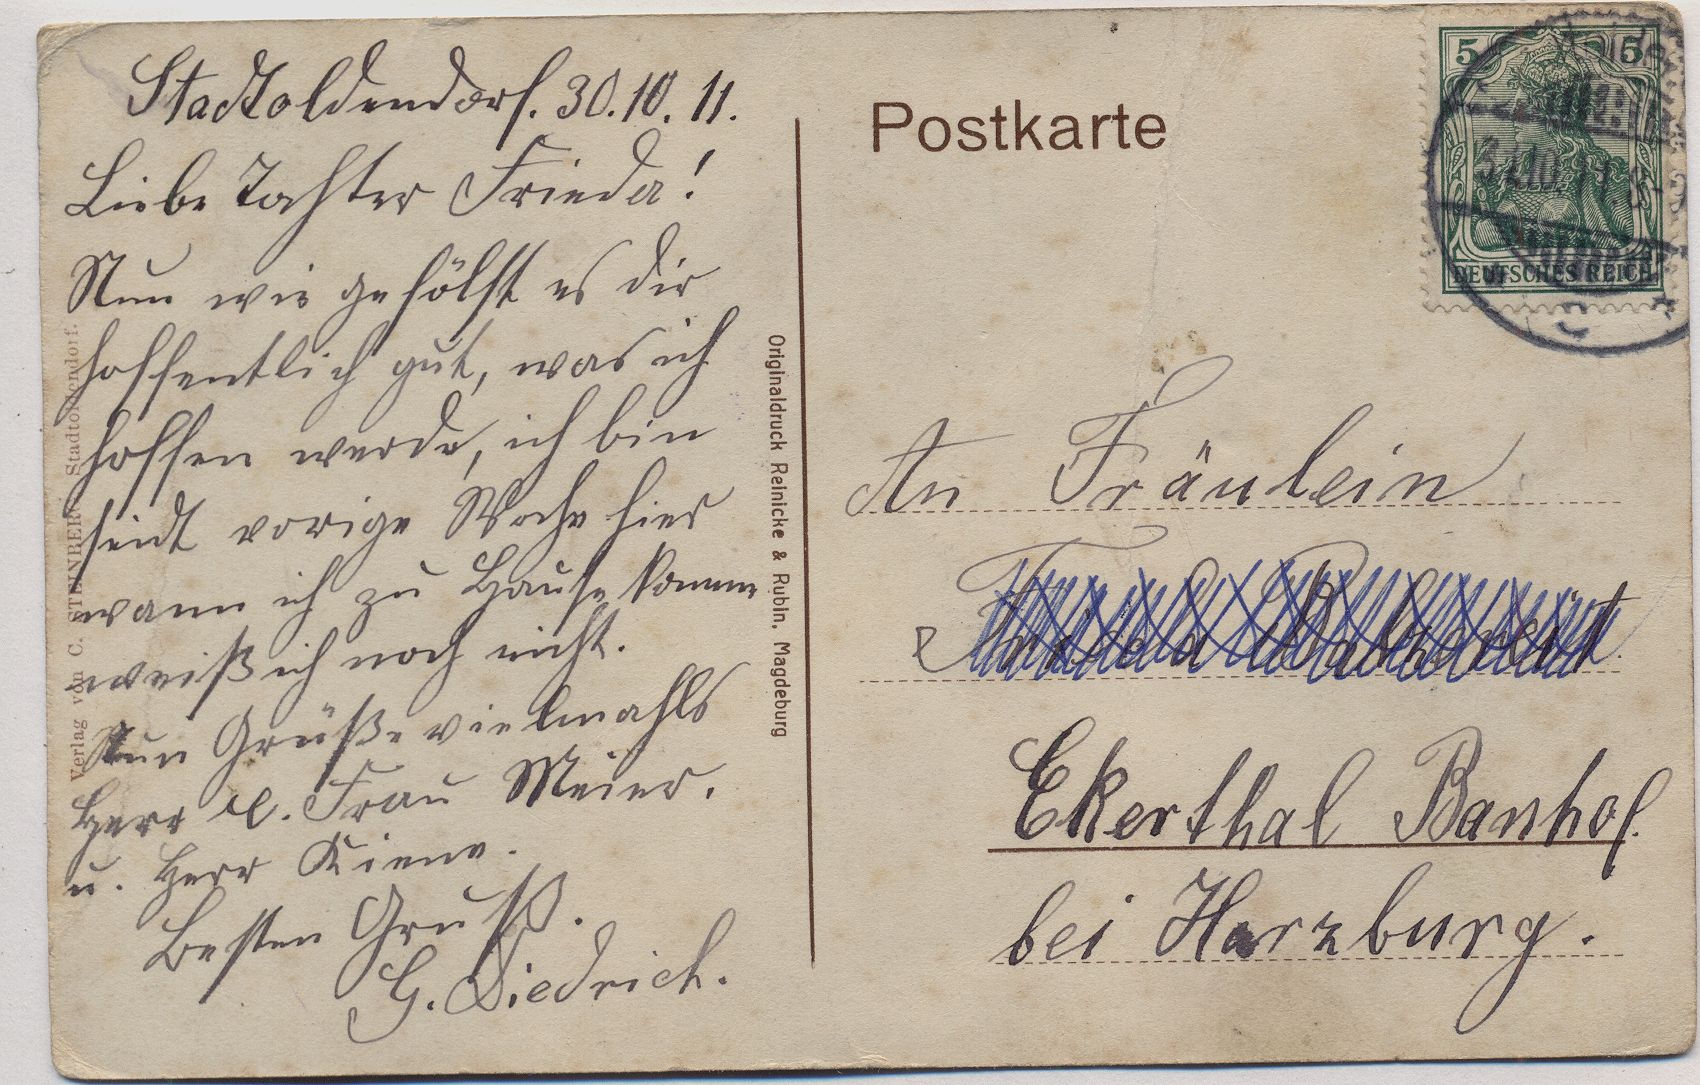 Stadtoldendorf. 30.10.11.
Liebe Tochter Frieda!
Nun wie gefällst es dir
hoffentlich gut, was ich
hoffen werde, ich bin
seidt vorige Woche hier
wann ich zu Hause komme
weiß ich noch nicht.
Nun Grüße vielmahls
Herr u. Frau Meier.
u. Herr Kiene.
Besten Gruß.
G. Diedrich.
Verlag von C. STEINBERG Stadtoldendorf.
Originaldruck Reinicke & Rubin, Magdeburg
Postkarte
5 5
DEUTSCHES REICH
An Fräulein
Frieda
Ekerthal Banhof.
bei Harzburg.